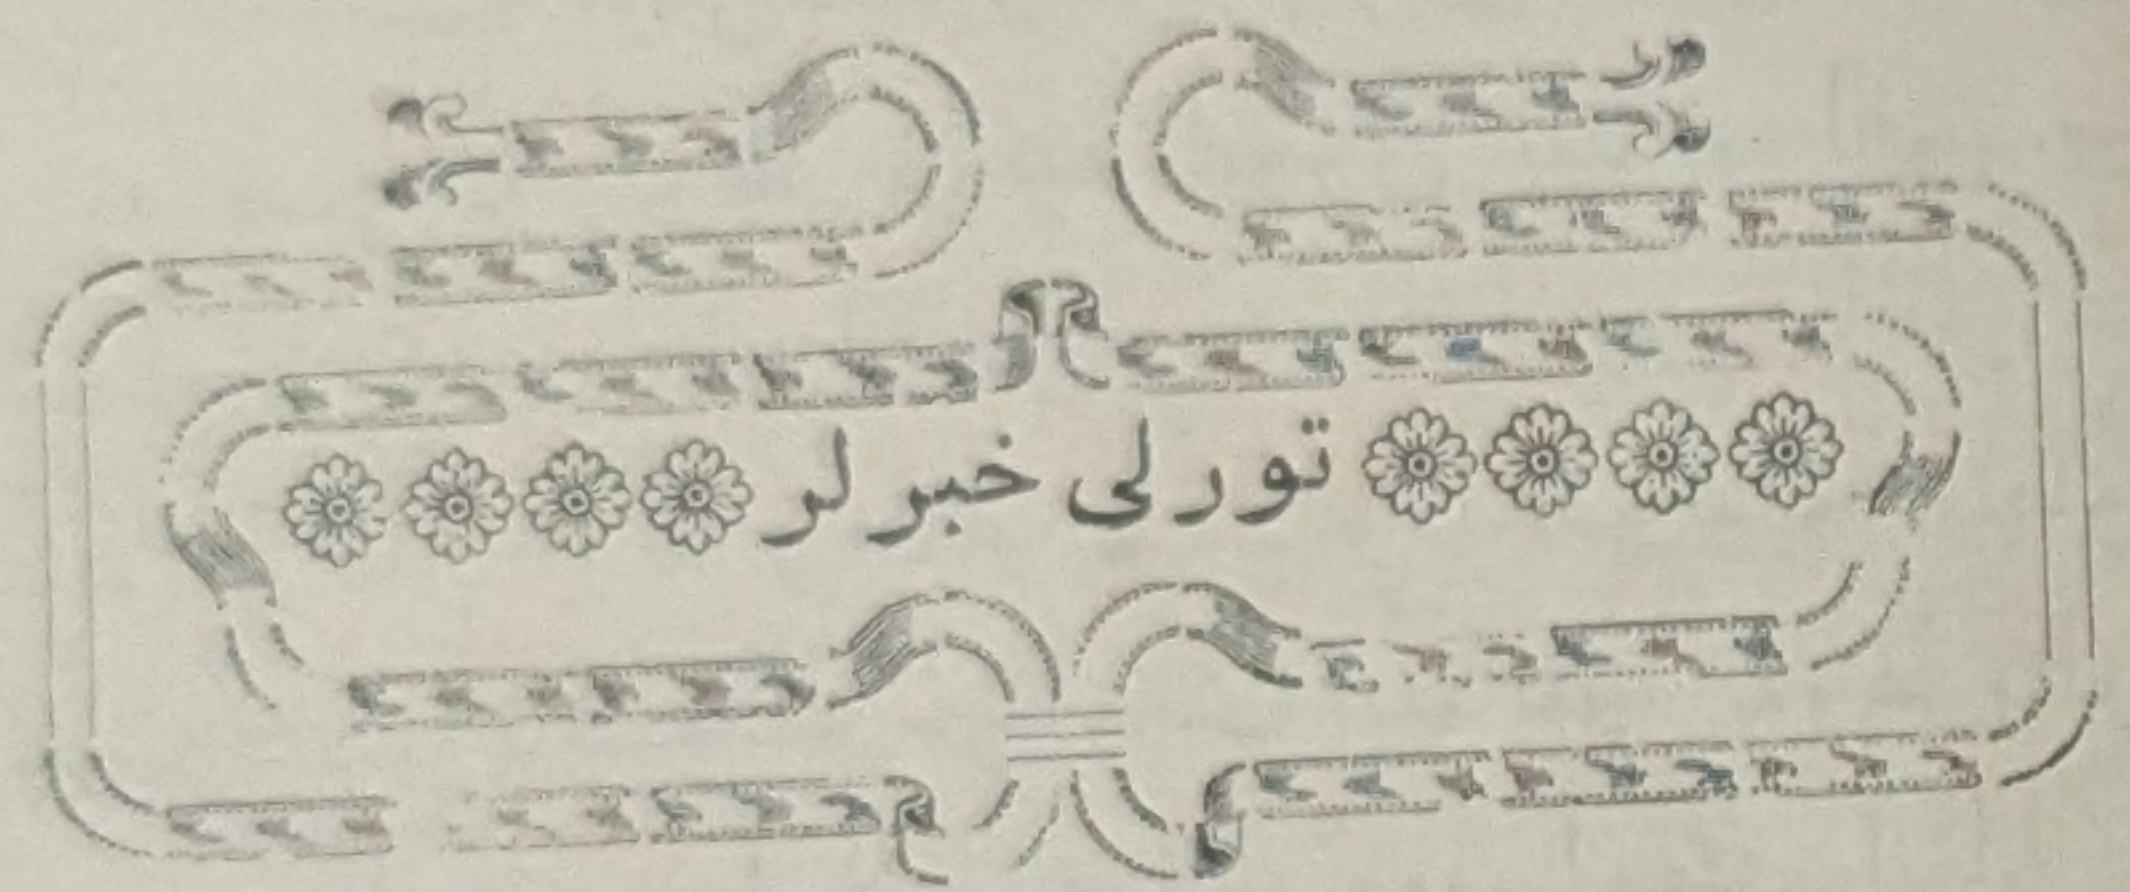 تورلی خبرلر